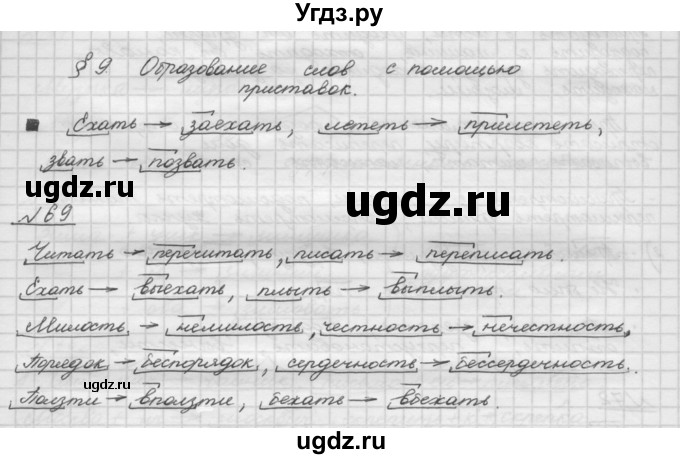 Угдз.ру
§ 9. Образование слов с помощью
приставок.
Ехать → заехать, лететь → прилететь,
звать → позвать.
ugdz.ru
ugdz.ru
№69
Читать → перечитать, писать → переписать.
Ехать → выехать, плыть → выплыть.
ugdz.ru
Милость → немилость, честность → нечестность,
Порядок → беспорядок, сердечность → бессердечность.
ugdz.ru
Ползти → вползти, бежать → вбежать.
ugdz.ru